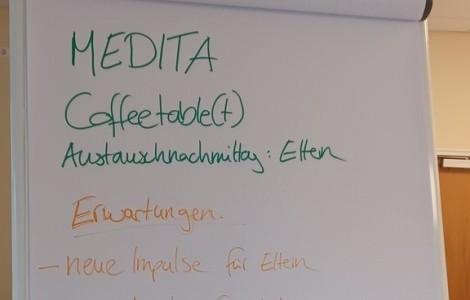 MEDITA
Coffeetable(t)
Austauschnachmittag: Eltern
Erwartungen.
- neue Impulse für Eltern